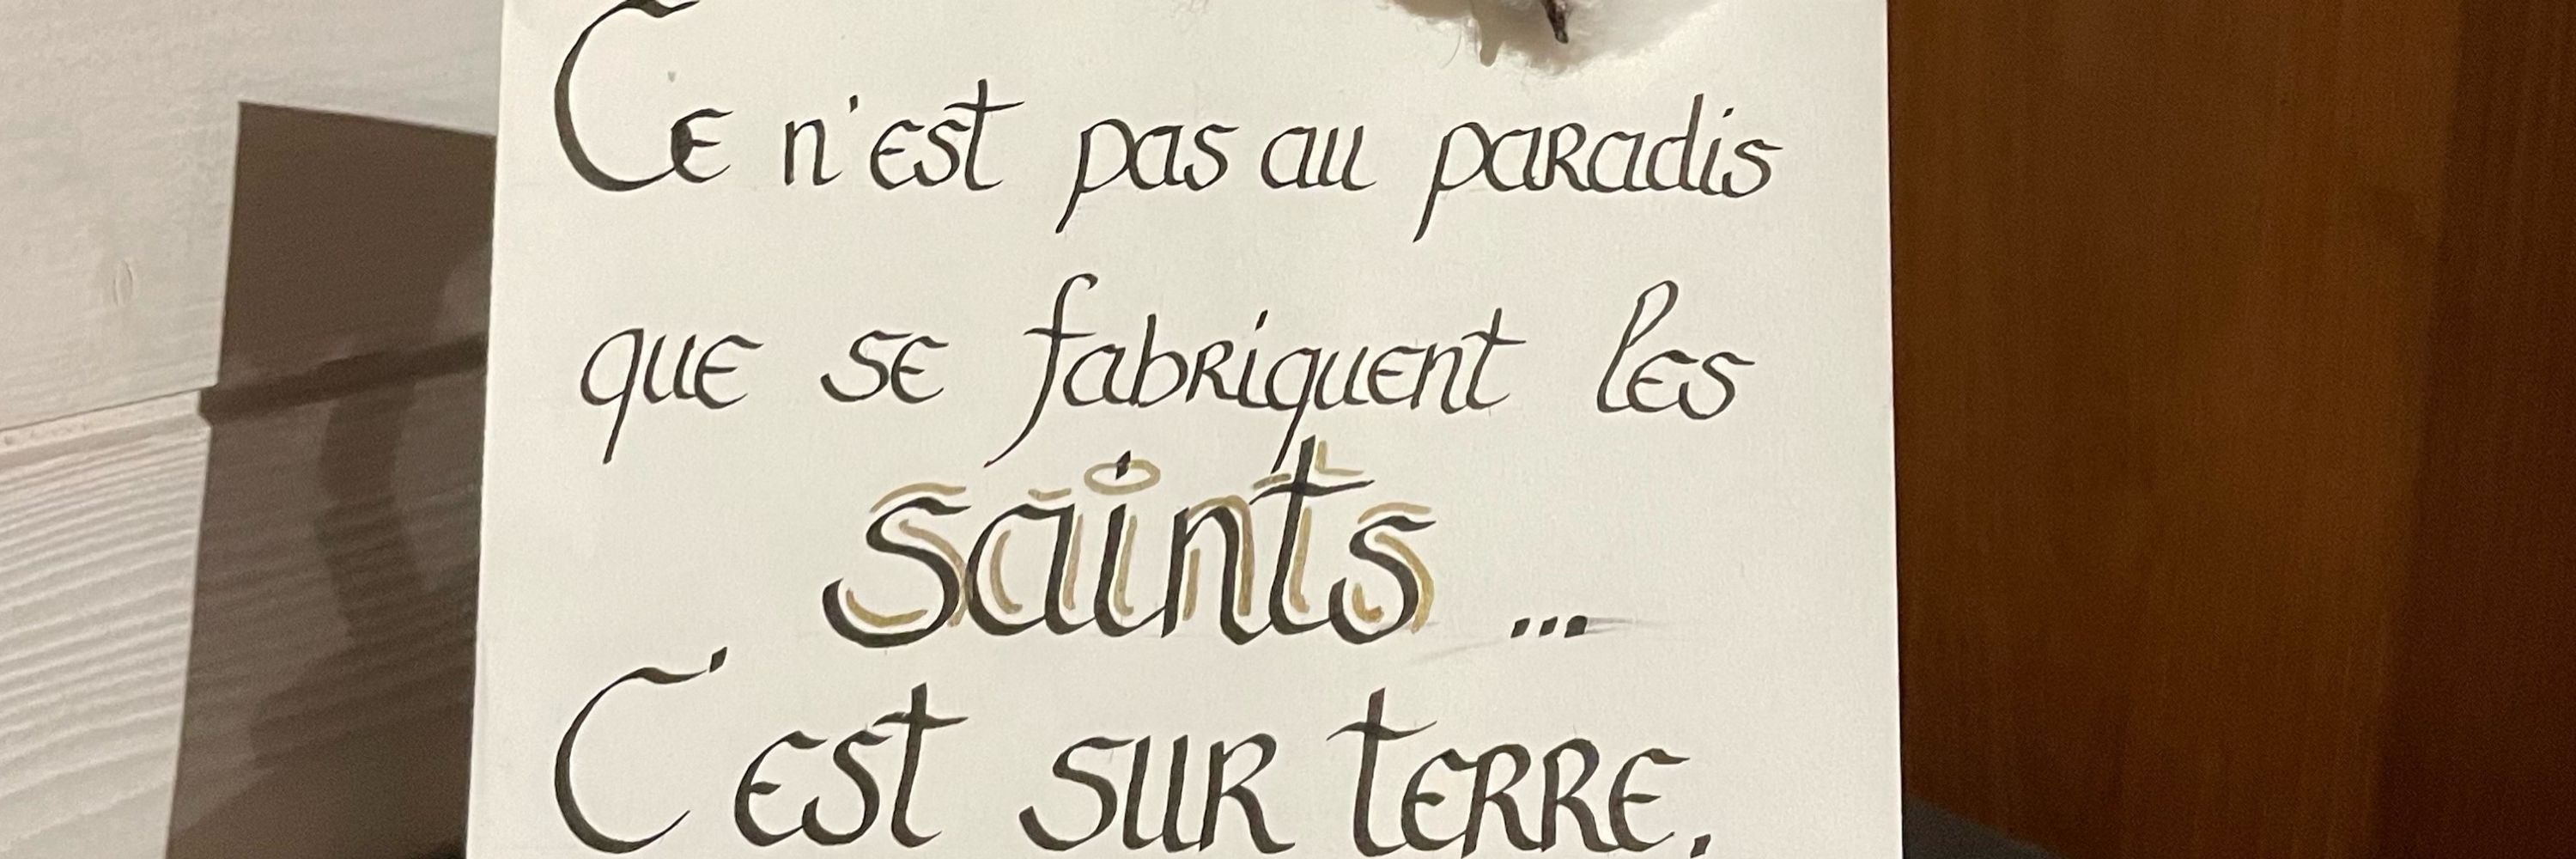 Ce n'est pas au paradis
que se fabriquent les
saints ...
C'est sur terre.